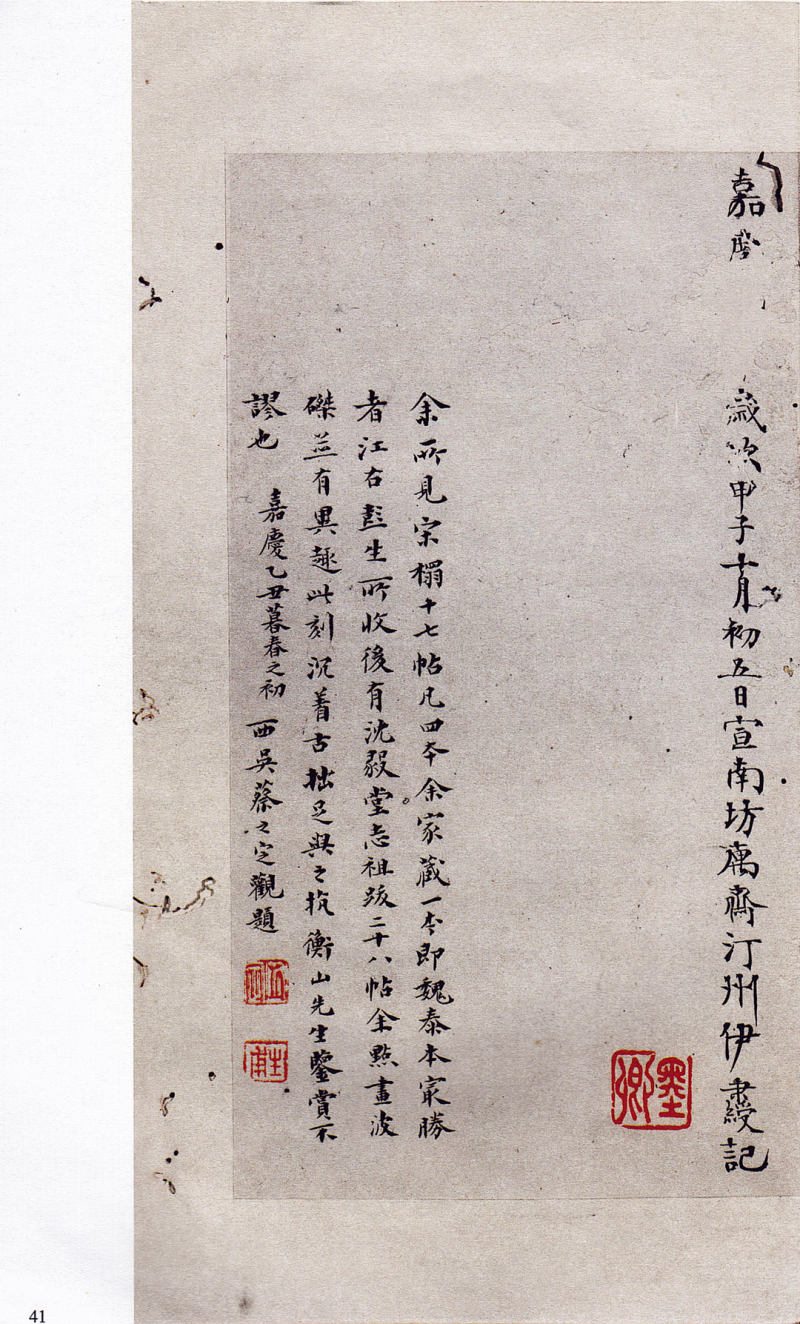 嘉慶
歲次甲子十月初五日宣南坊寓齋汀州伊秉綬記
墨卿
余所見宋榻十七帖凡四本余家藏一本即魏泰本冣勝
者江右彭生所收後有沈毅堂志祖跋二十八帖余點畫波
磔並有異趣此刻沉着古拙足與之抗衡山先生鑒賞不
謬也
嘉慶乙丑暮春之初
西吳蔡之定觀題
41